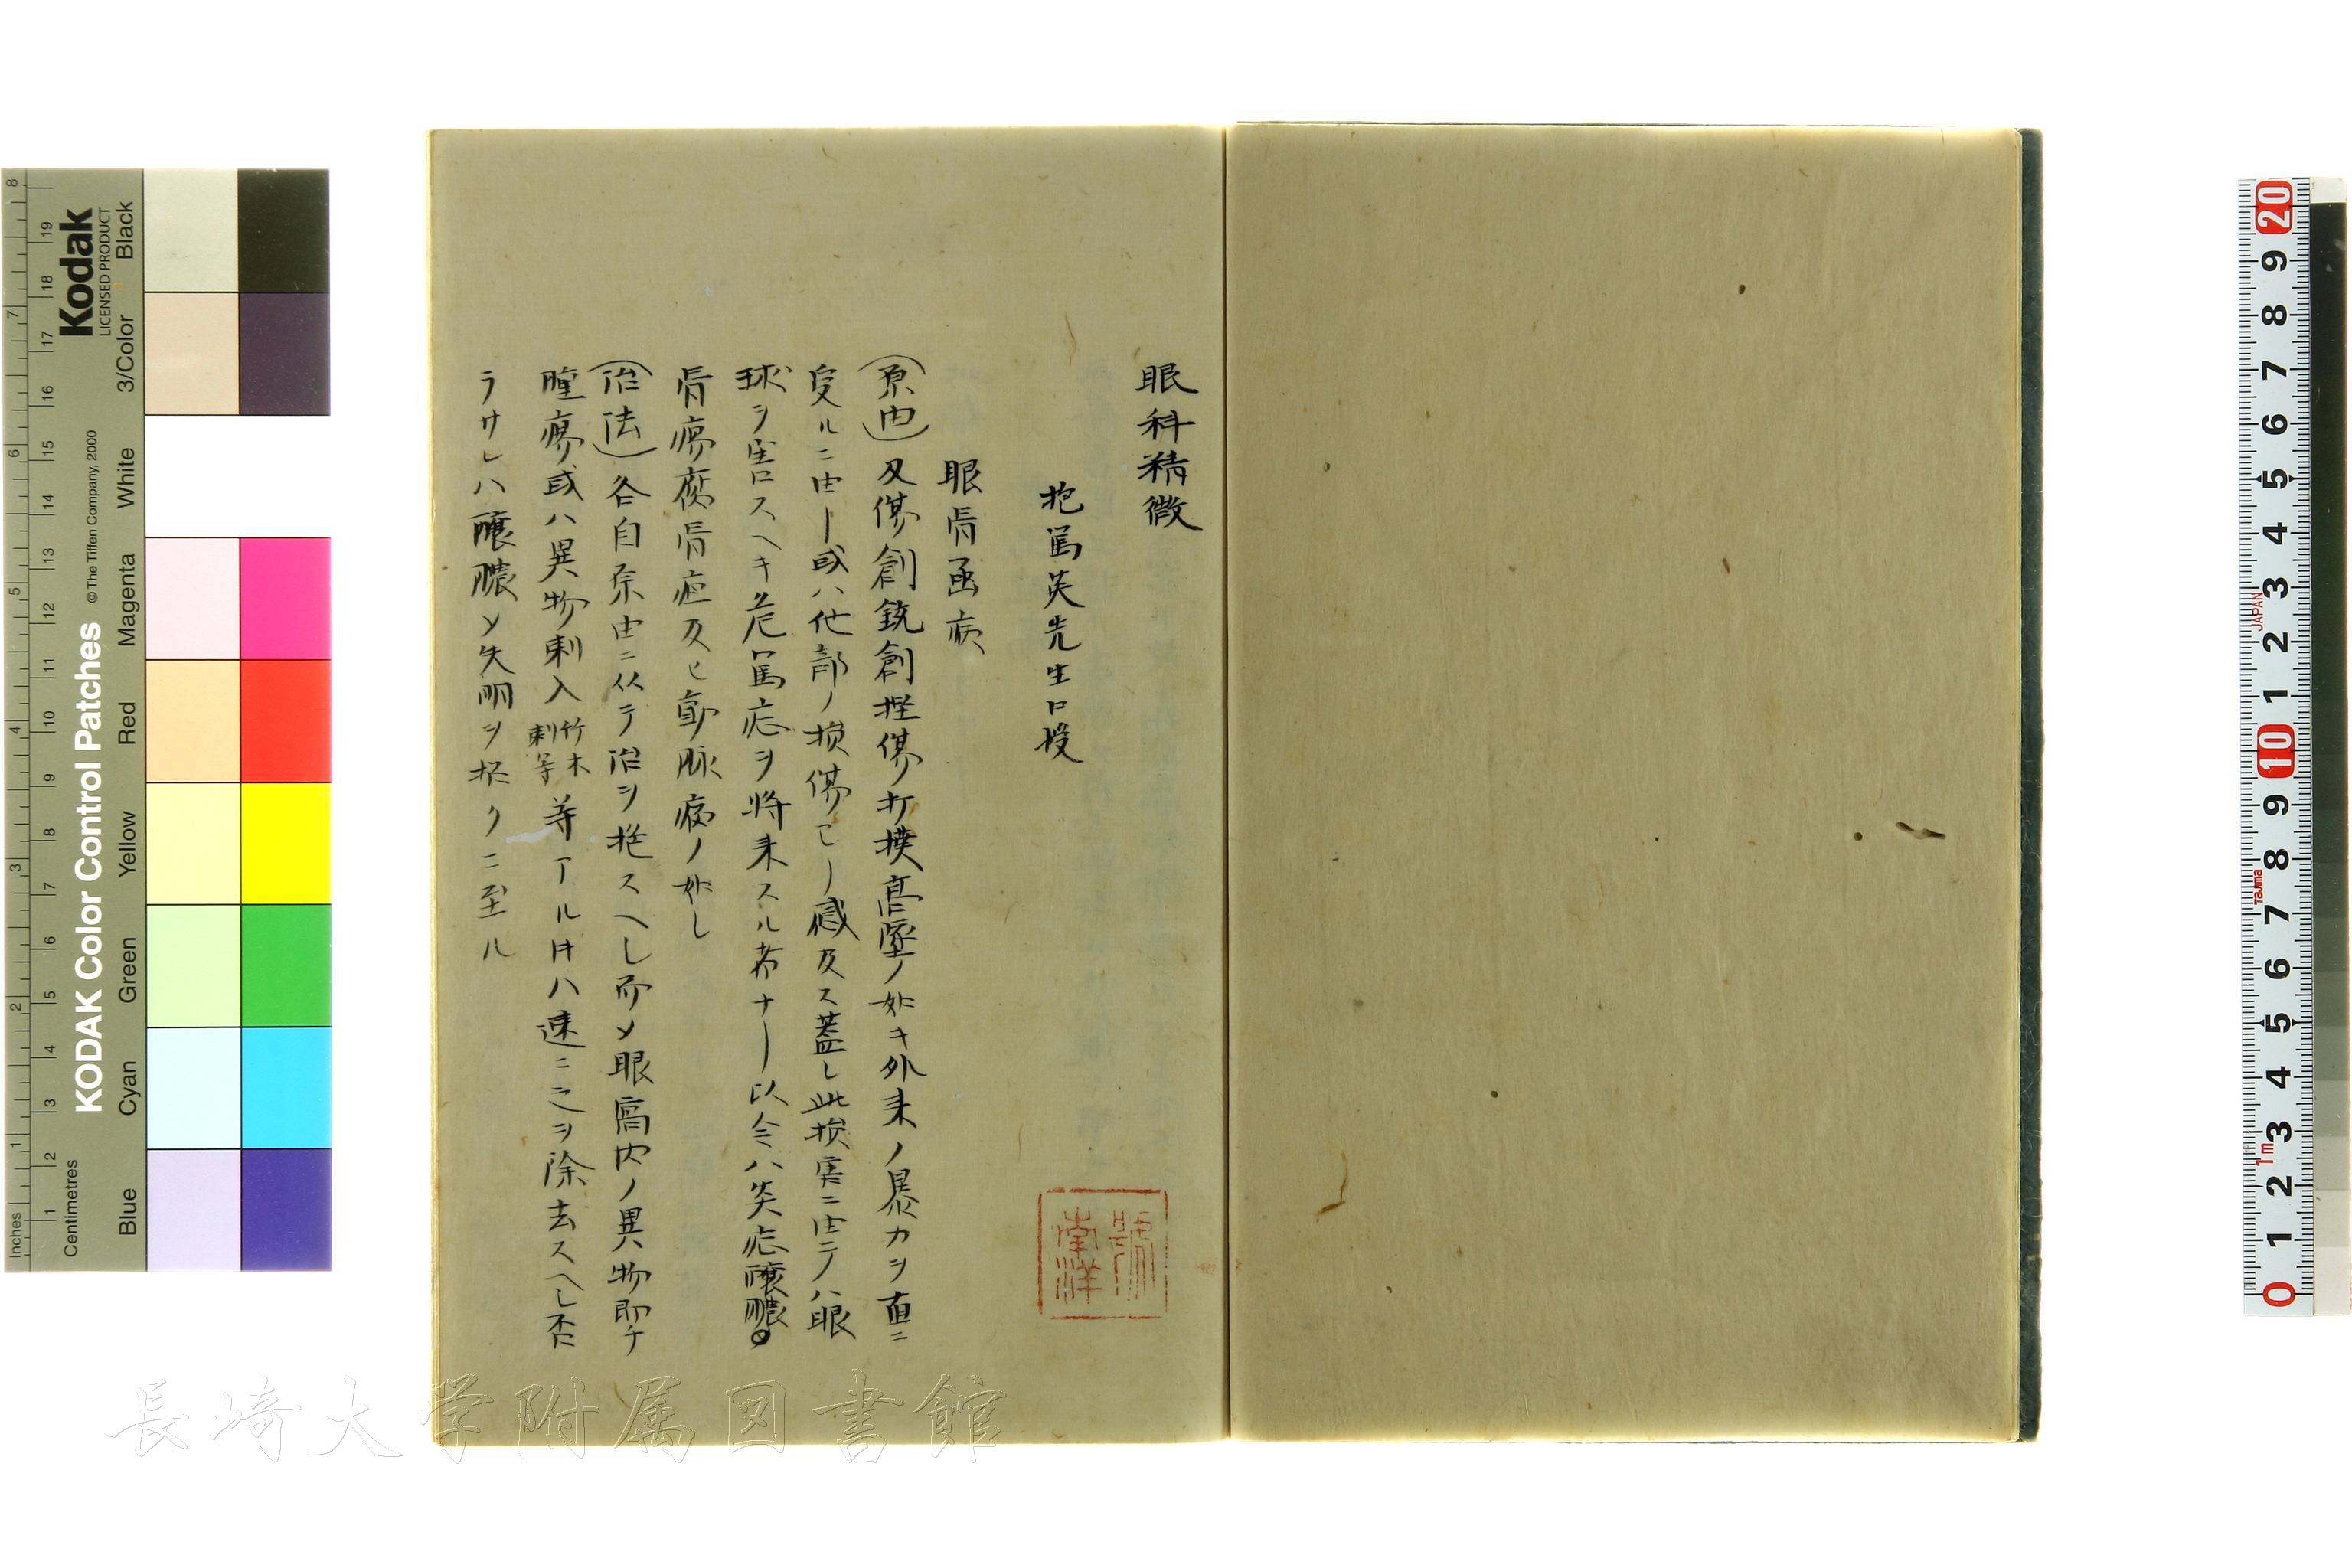 眼科精微
抱篤英先生口授
眼骨函病
(原由)刄傷創銃創挫傷打撲高墜ノ如キ外来ノ暴力ヲ直ニ
受ルニ由ー或ハ他部ノ損傷ヨー感及ス蓋し此損害ニ由テノハ眼
球ヲ害スヘキ危篤症ヲ将来スル者ナー以令ハ炎症醸膿
骨瘍腐骨疽及ヒ動脉病ノ如し
(治法)各自原由ニ从テ治ヲ施スヘし而乄眼窩内ノ異物即チ
腫瘍或ハ異物刺入竹木刺等等アル時ハ速ニ之ヲ除去スヘし否
ラサレハ醸膿乄失明ヲ招クニ至ル
號南洋
長崎大学附属図書館
Kodak
LICENSED PRODUCT
KODAK Color Control Patches
© The Tiffen Company, 2000
Inches
Centimetres
Blue
Cyan
Green
Yellow
Red
Magenta
White
3/Color
Black
1 2 3 4 5 6 7 8
1 2 3 4 5 6 7 8 9 10 11 12 13 14 15 16 17 18 19
20 9 8 7 6 5 4 3 2 1 10 9 8 7 6 5 4 3 2 1 0
JAPAN
Tajima
1m